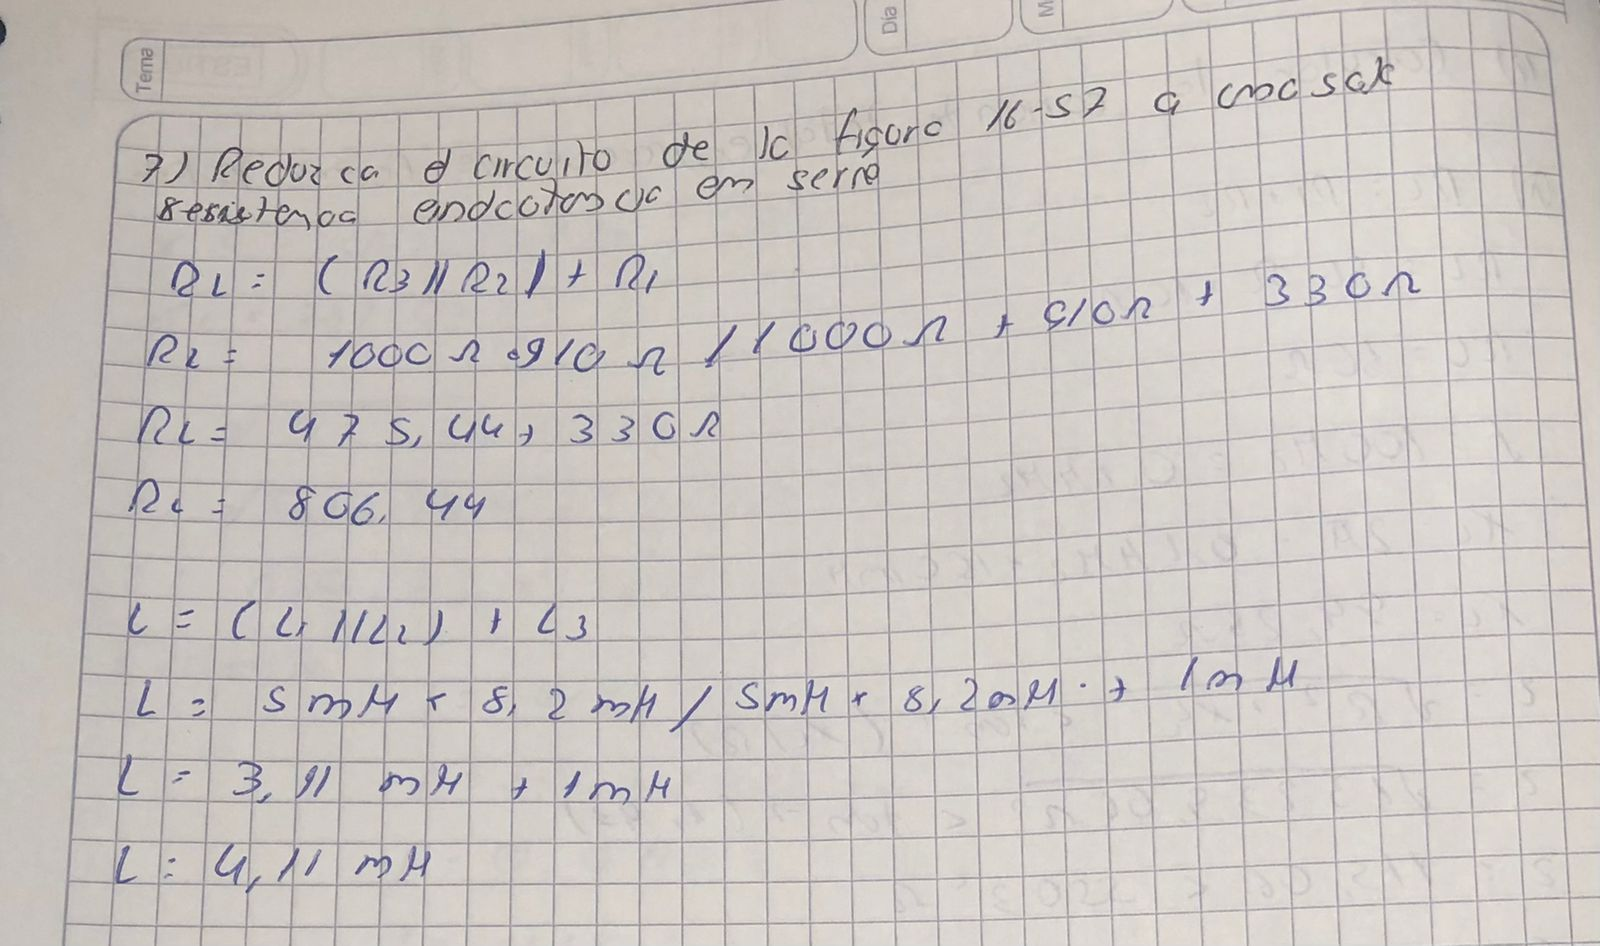 Tema
Día
M
7) Reduzca el circuito de la figura 16-57 a una sola
resistencia endcotancia en serie
RL = (R3 || R2) + R1
RL = 1000 Ω · 910 Ω / 1000 Ω + 910 Ω + 330 Ω
RL = 475,44 + 330 Ω
RL = 806,44
L = (L1 || L2) + L3
L = 5 mH · 8,2 mH / 5mH + 8,2mH + 1mH
L = 3,11 mH + 1mH
L = 4,11 mH